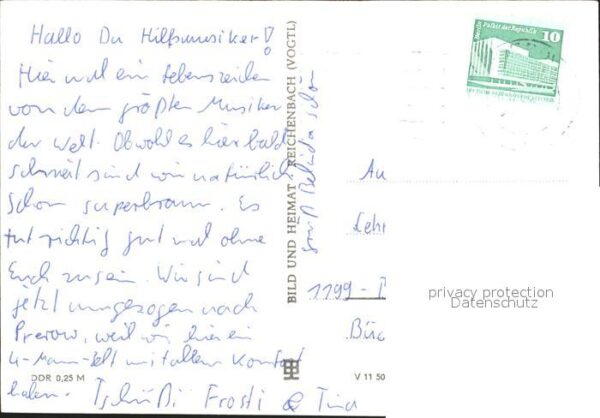 Hallo Du Hilfsmusiker!
Hier mal ein Lebenszeichen
von dem größten Musiker
der Welt. Obwohl es hier bald
schneit sind wir natürlich
schon superbraun. Es
tut richtig gut mal ohne
Euch zu sein. Wir sind
jetzt umgezogen nach
Prerow, weil wir hier ein
4-Mann-Zelt mit allem Komfort
haben. Tschüßi Frosti & Tina
DDR 0,25 M
BILD UND HEIMAT · REICHENBACH (VOGTL)
grüß schön
Berlin Palast der Republik
10
An
Lehr
1199 -
privacy protection
Datenschutz
V 11 50